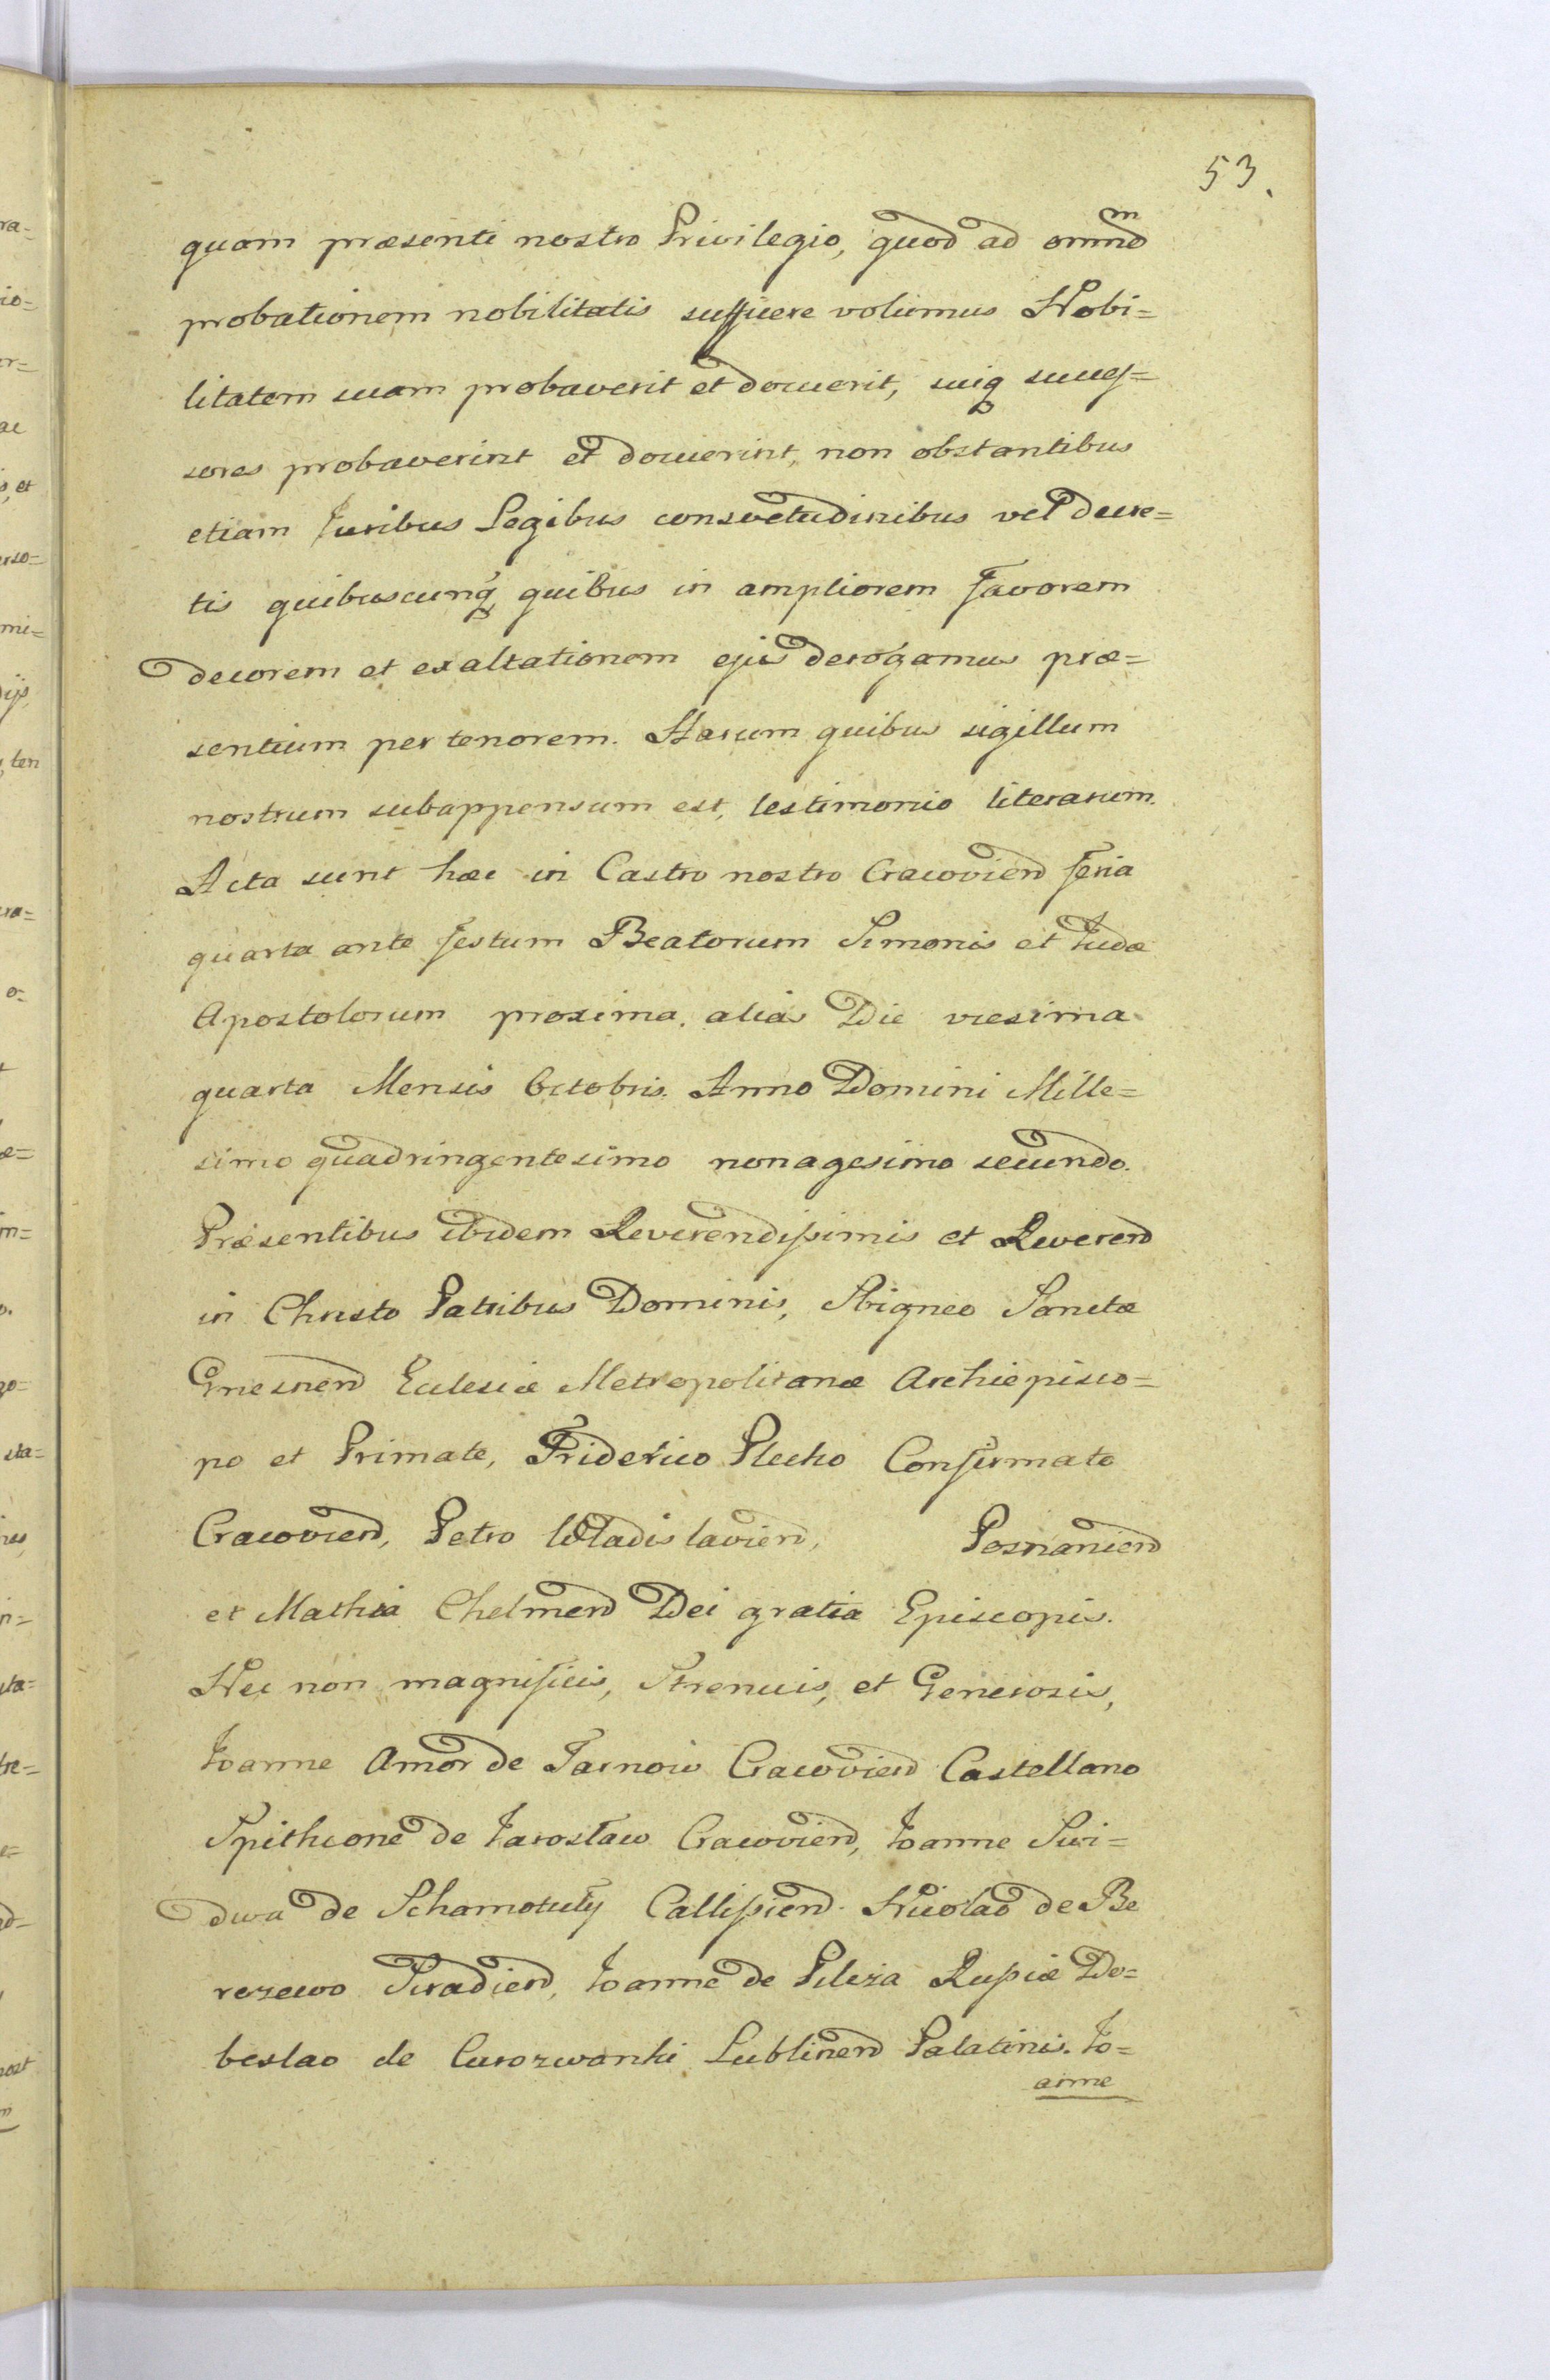 53.
quam præsenti nostro Privilegio, quod ad omnd^m
probationem nobilitatis sufficere volumus Nobi=
litatem suam probaverit et docuerit, suiq succeſ=
sores probaverint et docuerint, non obstantibus
etiam Iuribus Legibus consvetudinibus vel decre=
tis quibuscunq quibus in ampliorem favorem
decorem et exaltationem ejus derogamus præ=
sentium per tenorem. Harum quibus sigillum
nostrum subappensum est, testimonio literarum.
Acta sunt hæc in Castro nostro Cracoviend feria
quarta ante festum Beatorum Simonis et Iudæ
Apostolorum proxima, alias Die vicesima
quarta Mensis Octobris. Anno Domini Mille=
simo quadringentesimo nonagesimo secundo.
Præsentibus ibidem Reverendiſsimis et Reverend
in Christo Patribus Dominis, Sbigneo Sanctæ
Gnesnend Eclesiæ Metropolitanæ Archiepisco=
po et Primate, Friderico Electo Confirmato
Cracoviend, Petro Wladislaviend, Posnaniend
et Mathia Chelmend Dei gratia Episcopis.
Nec non magnificis, Strenuis, et Generosis,
Ioanne Amor de Tarnow Cracoviend Castellano
Spithcone de Iarosław Cracoviend, Ioanne Swi=
dwa de Schamotuly Calliſsiend. Nicolao de Be
rezewo Siradiend, Ioanne de Pileza Ruſsiæ Do=
beslao de Curozwanki Lublinend Palatinis. Io=
anne